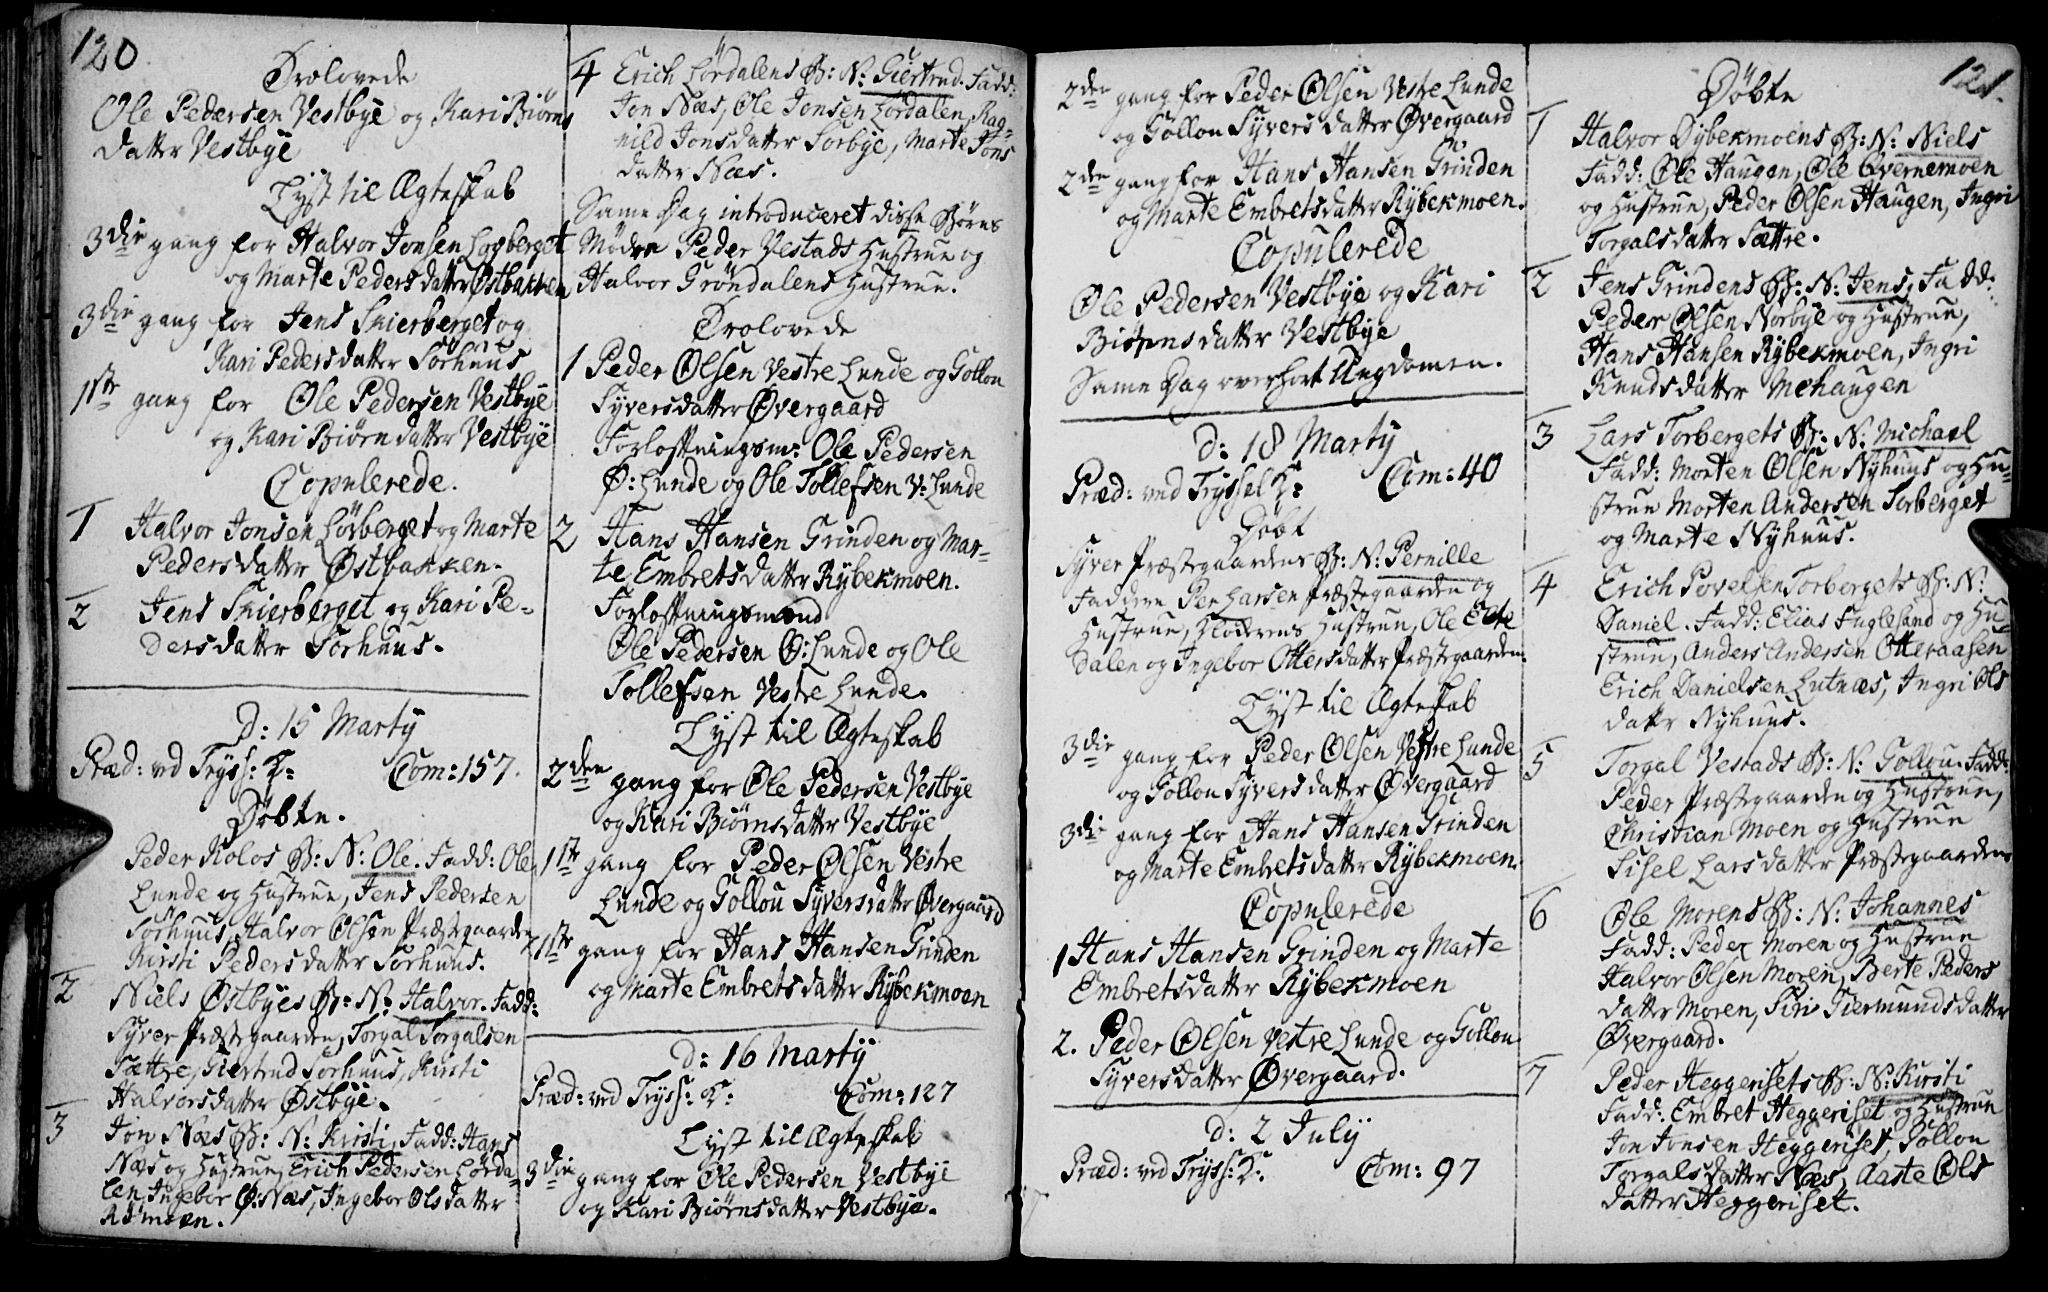 120.
Trolovede
Ole Pedersen Vestbye og Kari Biörns
datter Vestbye
Lyst til Ægteskab
3die gang for Halvor Jonsen Logberget
og Marte Pedersdatter Østbakken
3die gang for Jens Skierberget og
Kari Pedersdatter Sörhuus
1ste gang for Ole Pedersen Vestbye
og Kari Biörndatter Vestbye
Copulerede.
1 Halvor Jonsen Lövberget og Marte
Pedersdatter Østbakken.
2 Jens Skierberget og Kari Pe-
dersdatter Sörhuus.
D: 15 Martij
Præd: vd Tryss: K: Com: 157.
Döbte.
Peder Kolos B: N: Ole. Fadd: Ole
Lunde og Hustrue, Jens Pedersen
Sörhuus, Halvor Olsen Præstegaarden
Kirsti Pedersdatter Sörhuus.
2 Niels Østbyes B: N: Halvor. Fadd:
Syver Præstegaarden, Torgal Torgalsen
Sættre, Giertrud Sörhuus, Kirsti
Halvorsdatter Østbye.
3 Jon Næs B: N: Kirsti, Fadd: Hans
Næs og Hustrue, Erich Pedersen Lörda-
len, Ingebor Ø: Næs, Ingebor Olsdatter
moen.
4 Erich Lördalens B: N: Giertrud. Fadd:
Jon Næs, Ole Jonsen Lördalen, Rag-
nild Jonsdatter Sorbye, Marte Jons
datter Næs.
Same Dag introduceret disse Börns
Mödre Peder Vestads Hustrue og
Halvor Gröndalens Hustrue.
Trolovede
1 Peder Olsen Vestre Lunde og Gollou
Syversdatter Øvergaard
Forloftningsm: Ole Pedersen
Ø: Lunde og Ole Tollefsen V: Lunde
2 Hans Hansen Grinden og Mar-
te Embretsdatter Rybekmoen.
Forloftningsmænd
Ole Pedersen Ø: Lunde og Ole
Tollefsen Vestre Lunde.
Lyst til Ægteskab
2den gang for Ole Pedersen Vestbye
og Kari Biörnsdatter Vestbye
1ste gang for Peder Olsen Vestre
Lunde og Gollou Syversdatter Øvergaard
1ste gang for Hans Hansen Grinden
og Marte Embretsdatter Rybekmoen
d: 16 Martij
Præd: ved Tryss: K: Com: 127
Lyst til Ægteskab
3die gang for Ole Pedersen Vestbye
og Kari Biörnsdatter Vestbye.
2den gang for Peder Olsen Vestre Lunde
og Gollou Syversdatter Øvergaard
2den gang for Hans Hansen Grinden
og Marte Embretsdatter Rybekmoen.
Copulerede
Ole Pedersen Vestbye og Kari
Biörnsdatter Vestbye
Same Dag overhört Ungdomen.
d: 18 Martij
Præd: ved Tryssel K: Com: 40
Döbt
Syver Præstegaardens B: N: Pernille
Faddere Per Larsen Præstegaarden og
Hustrue, Klokerens Hustrue, Ole Elte
dalen og Ingebor Ottersdatter Præstegaarden.
Lyst til Ægteskab
3die gang for Peder Olsen Vestre Lunde
og Gollou Syversdatter Øvergaard
3die gang for Hans Hansen Grinden
og Marte Embretsdatter Rybekmoen.
Copulerede
1 Hans Hansen Grinden og Marte
Embretsdatter Rybekmoen
2. Peder Olsen Vestre Lunde og Gollou
Syversdatter Øvergaard.
d: 2 July
Præd: ved Tryss: K: Com: 97
121.
Döbte
1 Halvor Dybekmoens B: N: Niels
Fadd: Ole Haugen, Ole Qvernemoen
og Hustrue, Peder Olsen Haugen, Ingri
Torgalsdatter Sættre.
2 Jens Grindens B: N: Jens, Fadd:
Peder Olsen Norbye og Hustrue,
Hans Hansen Rybekmoen, Ingri
Knudsdatter Mehaugen
3 Lars Torbergets B: N: Michael
Fadd: Morten Olsen Nyhuus og Hu-
strue Morten Andersen Torberget
og Marte Nyhuus.
4 Erich Povelsen Torbergets B: N:
Daniel. Fadd: Elias Fuglesand og Hu-
strue, Anders Andersen Otteraasen
Erich Danielsen Lutnæs, Ingri Ols
datter Nyhuus.
5 Torgal Vestads B: N: Gollou. Fadd:
Peder Præstegaarden og Hustrue,
Christian Moen og Hustrue
Sisel Larsdatter Præstegaarden
6 Ole Morens B: N: Johannes
Fadd: Peder Moren og Hustrue
Halvor Olsen Moren, Berte Peders
datter Moren, Siri Giermundsdatter
Øvergaard.
7 Peder Heggerisets B: N: Kirsti
Fadd: Embret Heggeriset og Hustrue
Jon Jonsen Heggeriset, Gollou
Torgalsdatter Næs, Aaste Ols
datter Heggeriset.